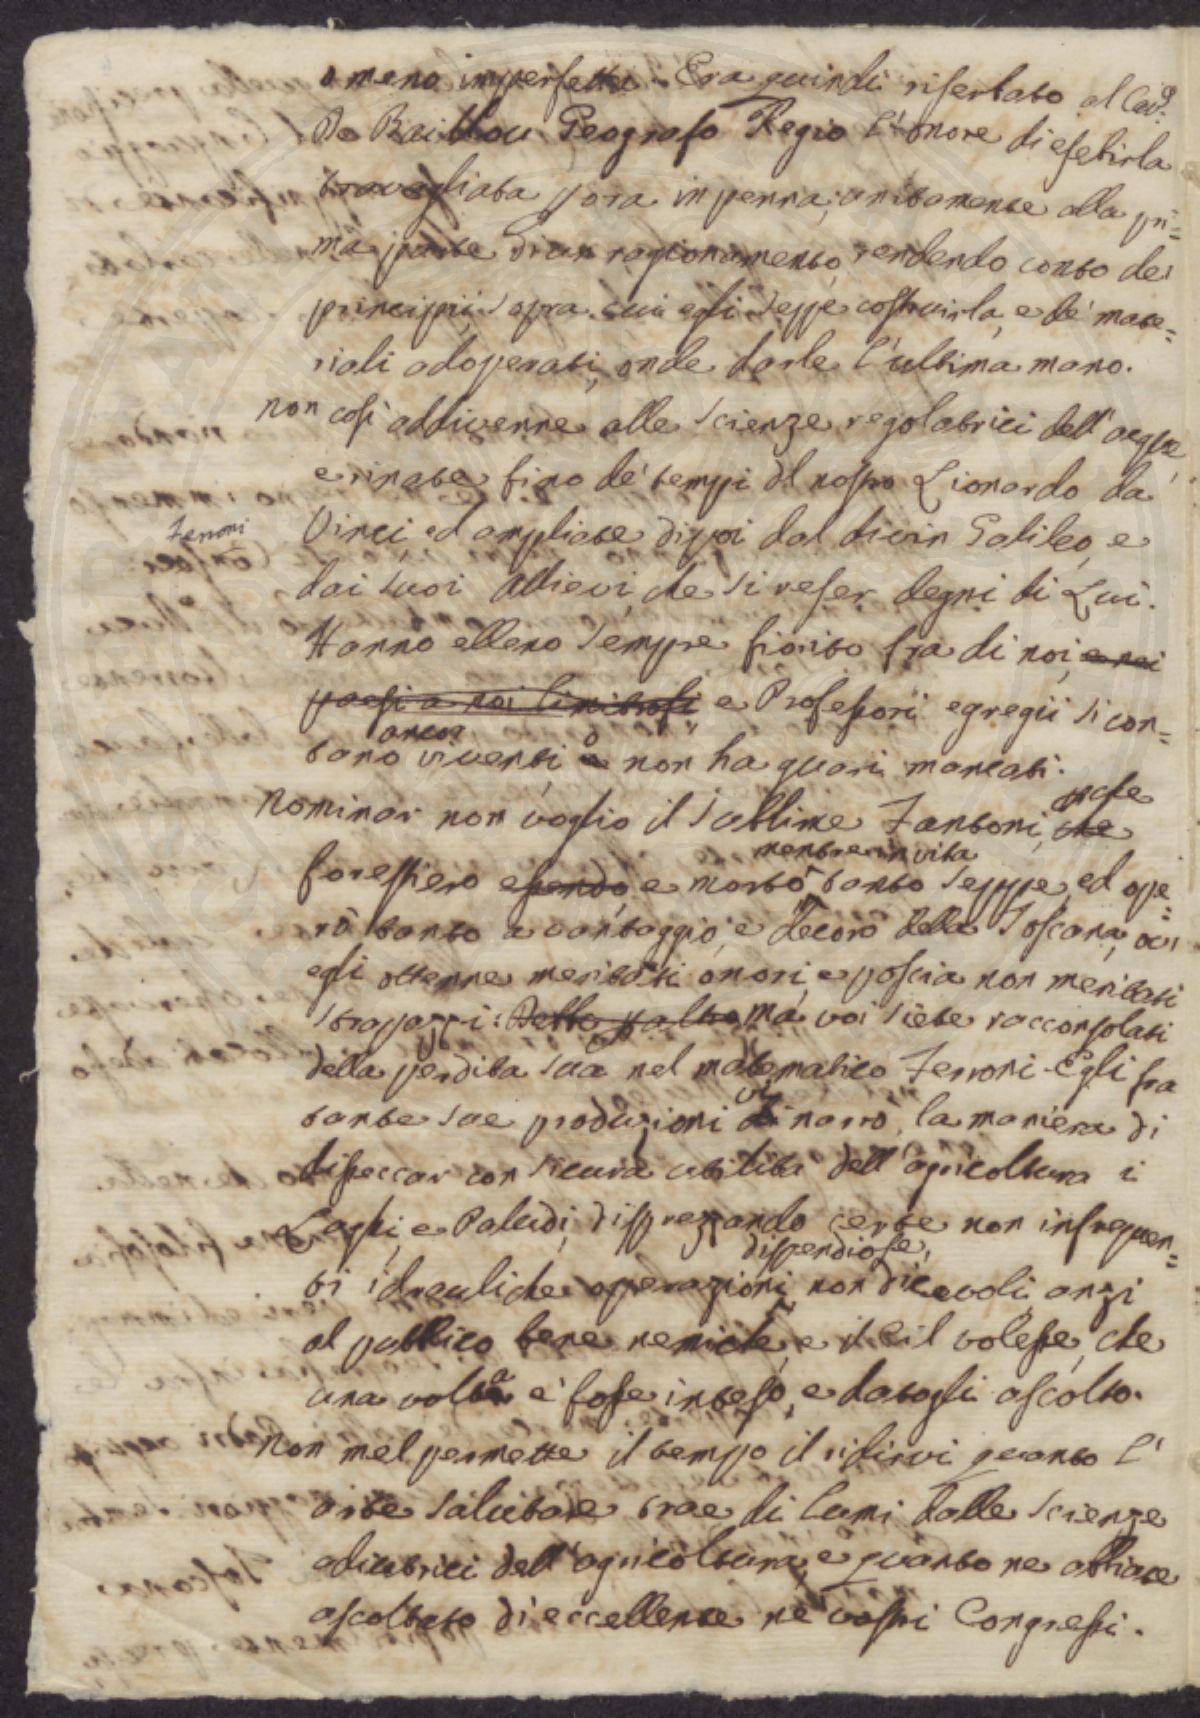 o meno imperfetta. Era quindi riserbato al Cav.e
De Baillou Geografo Regio l'onore di esebirla
travagliata sora in penna, unitamente alla pri=
ma parte di un ragionamento, rendendo conto dei
principii, sopra cui egli seppe costruirla, e de' mate=
riali adoperati, onde darle l'ultima mano.
Non così addivenne alle scienze regolatrici dell'acque,
e rinate fino de' tempi del nostro Lionardo da
Ferroni
Vinci ed ampliate dipoi dal divin Galileo, e
dai suoi Allievi, che si reser degni di Lui.
Hanno elleno sempre fiorito fra di noi, e nei
paesi a noi limitrofi e Professori egregii si con=
ancor o
tano viventi e non ha guari mancati.
Nominar non voglio il sublime Fantoni, che
forestiero essendo, e morto tanto seppe, ed ope=
mentre in vita
rò tanto a vantaggio, e decoro della Toscana, ov'
egli ottenne meritati onori, e poscia non meritati
strapazzi: ma voi siete racconsolati
della perdita sua nel matematico Ferroni. Egli fra
vi
tante sue produzioni di narrò, la maniera di
disseccar con sicura utilità dell'agricoltura i
Laghi, e Paludi, disprezzando certe non infrequen=
dispendiose,
ti idrauliche operazioni, non dicevoli, anzi
al pubblico bene nemiche, e il Ciel volesse, che
una volta e' fosse inteso, e datogli ascolto.
Non mel permette il tempo il ridirvi quanto l'
arte salutare trae di lumi dalle scienze
adiutrici dell'agricoltura, e quanto ne abbiate
ascoltato di eccellente ne' vostri Congressi.